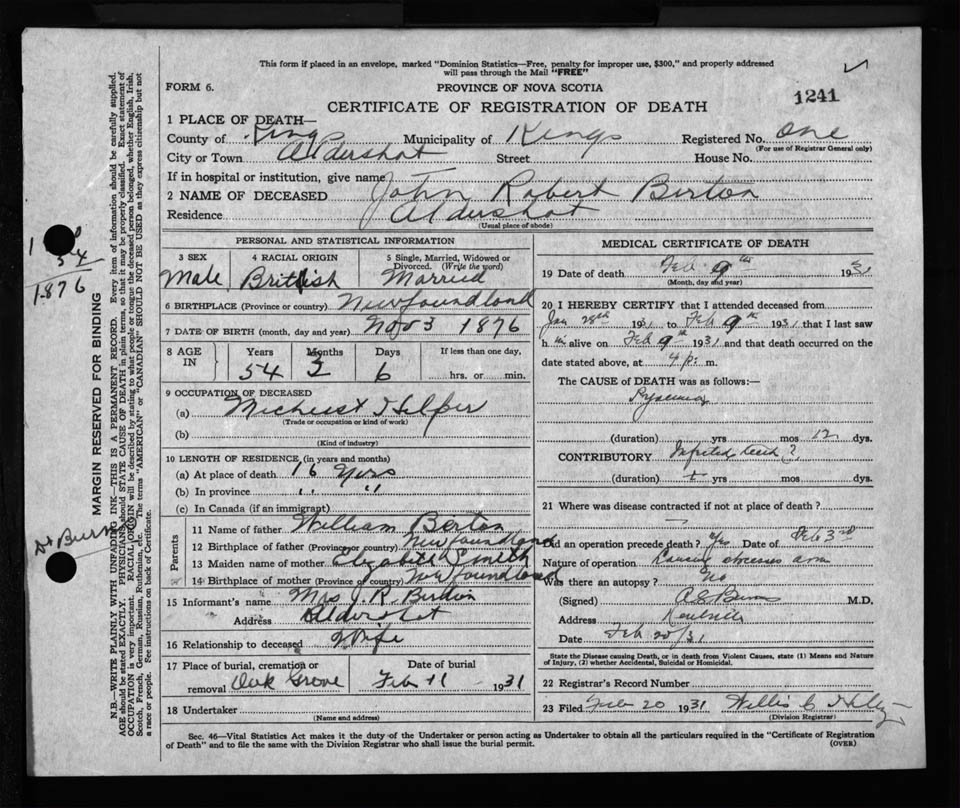 This form if placed in an envelope, marked "Dominion Statistics—Free, penalty for improper use, $300," and properly addressed
will pass through the Mail "FREE"
FORM 6.
PROVINCE OF NOVA SCOTIA
1241
CERTIFICATE OF REGISTRATION OF DEATH
1 PLACE OF DEATH—
County of Kings Municipality of Kings Registered No. one
(For use of Registrar General only)
City or Town Aldershot Street House No.
If in hospital or institution, give name
2 NAME OF DECEASED John Robert Berton
Residence Aldershot
(Usual place of abode)
PERSONAL AND STATISTICAL INFORMATION
3 SEX 4 RACIAL ORIGIN 5 Single, Married, Widowed or
Divorced. (Write the word)
Male British Married
6 BIRTHPLACE (Province or country) Newfoundland
7 DATE OF BIRTH (month, day and year) Nov 3 1876
8 AGE IN Years Months Days If less than one day,
54 3 6 hrs. or min.
9 OCCUPATION OF DECEASED
(a) Helper
(Trade or occupation or kind of work)
(b)
(Kind of industry)
10 LENGTH OF RESIDENCE (in years and months)
(a) At place of death 16 Years
(b) In province " "
(c) In Canada (if an immigrant)
Parents
11 Name of father William Berton
12 Birthplace of father (Province or country) Newfoundland
13 Maiden name of mother Elizabeth Smith
14 Birthplace of mother (Province or country) Newfoundland
15 Informant's name Mrs J. R.
Address Aldershot
16 Relationship to deceased Wife
17 Place of burial, cremation or Date of burial
removal Oak Grove Feb 11 1931
18 Undertaker
(Name and address)
MEDICAL CERTIFICATE OF DEATH
19 Date of death Feb 9th 1931
(Month, day and year)
20 I HEREBY CERTIFY that I attended deceased from
Jan 28th 1931 to Feb 9th 1931 that I last saw
him alive on Feb 9th 1931 and that death occurred on the
date stated above, at 4 p. m.
The CAUSE of DEATH was as follows:—
Pyaemia
(duration) yrs mos 12 dys.
CONTRIBUTORY Infected ?
(duration) yrs mos dys.
21 Where was disease contracted if not at place of death?
Did an operation precede death? Yes Date of Feb 3rd
Nature of operation abscesses arm
Was there an autopsy? No
(Signed) Burns M.D.
Address Kentville
Date Feb 20/31
State the Disease causing Death, or in death from Violent Causes, state (1) Means and Nature
of Injury, (2) whether Accidental, Suicidal or Homicidal.
22 Registrar's Record Number
23 Filed Feb 20 1931 Willis C
(Division Registrar)
Sec. 46—Vital Statistics Act makes it the duty of the Undertaker or person acting as Undertaker to obtain all the particulars required in the "Certificate of Registration
of Death" and to file the same with the Division Registrar who shall issue the burial permit. (OVER)
54
1876
Dr Burns
MARGIN RESERVED FOR BINDING
N.B.—WRITE PLAINLY WITH UNFADING INK—THIS IS A PERMANENT RECORD. Every item of information should be carefully supplied.
AGE should be stated EXACTLY. PHYSICIANS should STATE CAUSE OF DEATH in plain terms, so that it may be properly classified. Exact statement of
OCCUPATION is very important. RACIAL ORIGIN will be described by stating to what people or tongue the deceased person belonged, whether English, Irish,
Scotch, French, German, Russian, Ruthenian, etc. The terms "AMERICAN" or "CANADIAN" SHOULD NOT BE USED as they express citizenship but not
a race or people. See instructions on back of Certificate.